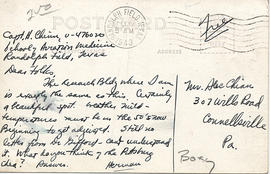 200
Free
POSTCARD
ADDRESS
Capt. H. Chinn, 0-476020
School of Aviation Medicine
Randolph Field, Texas
Dear Folks,
The Research Bldg. where I am
is exactly the same as this. Certainly
a beautiful spot. Weather mild -
temperatures must be in the 50's now
Beginning to get adjusted. Still no
letter from Dr. Gifford - can't understand
it. What do you think of the Pittsburg
idea? Answer. Herman
Mrs. Abe Chinn
307 Wills Road
Connellsville
Pa.